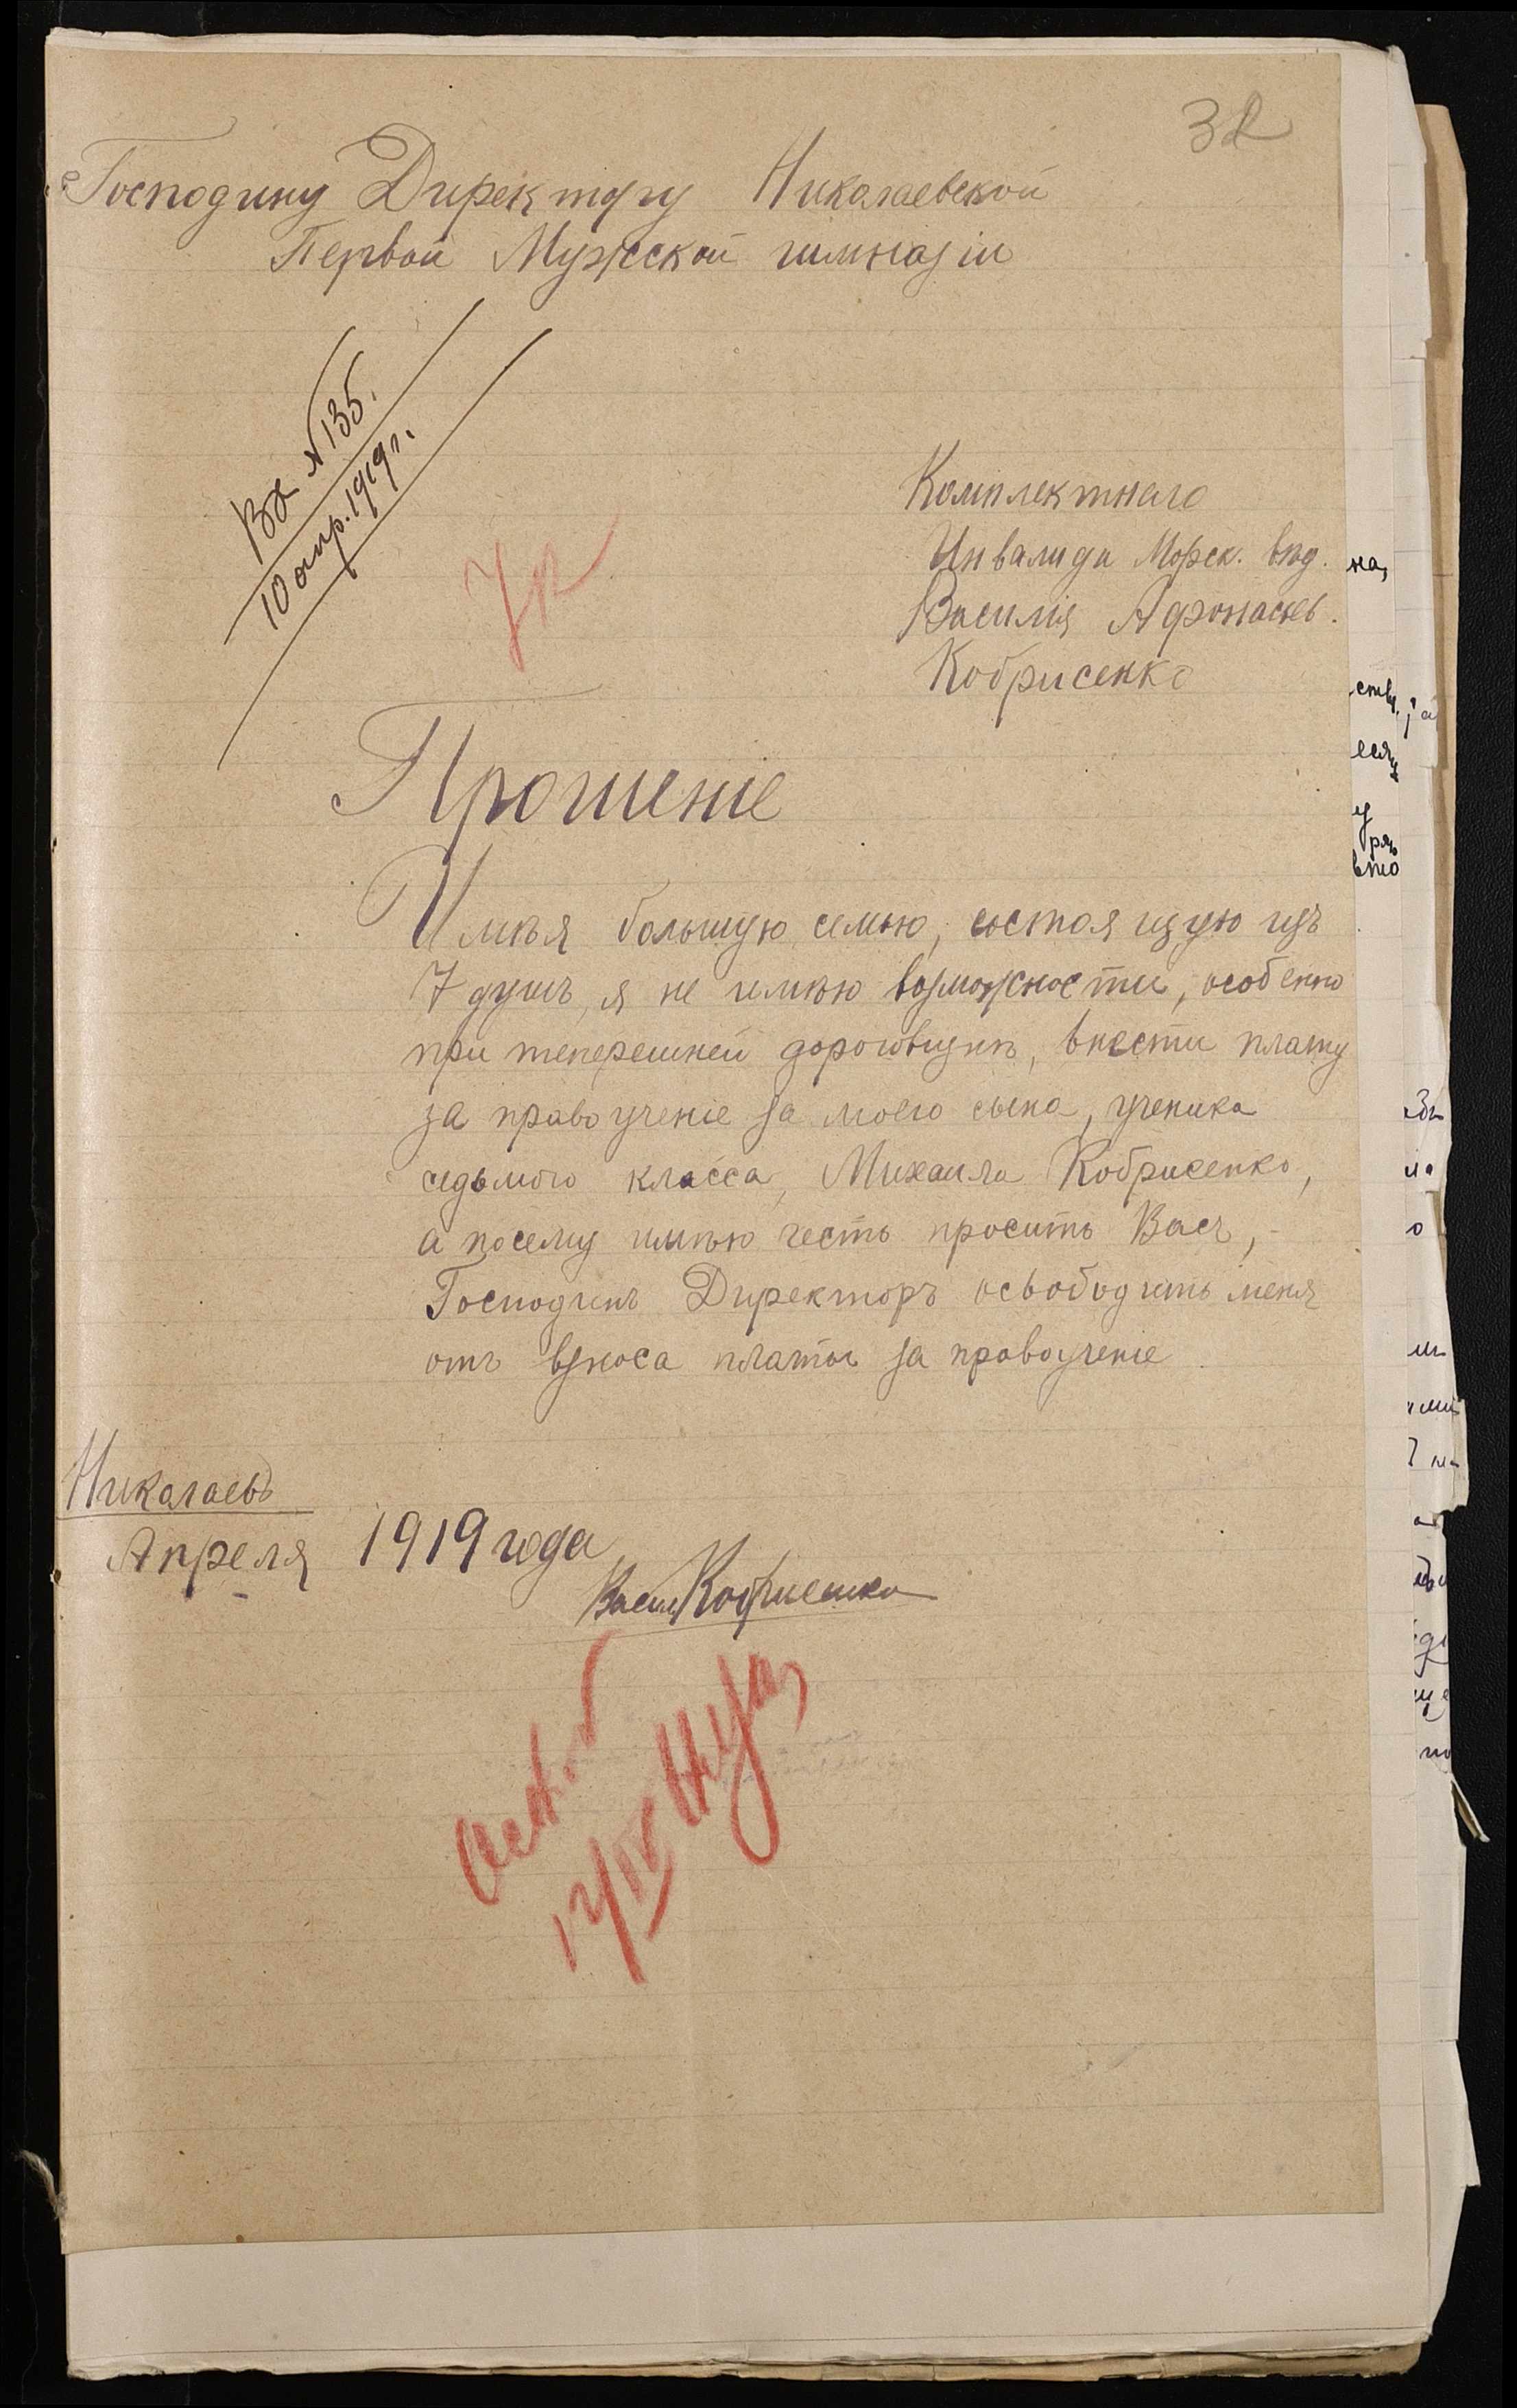 32
Господину Директору Николаевской
Первой Мужской гимназіи
Вх. №135.
10 апр. 1919 г.
Комплектнаго
Инвалида Морск. вѣд.
Василія Афонасьев.
Кобрисенко
Прошеніе
Имѣя большую семью, состоящую изъ
7 душъ, я не имѣю возможности, особенно
при теперешней дороговизнѣ, внести плату
за правоученіе за моего сына, ученика
седьмого класса, Михаила Кобрисенко,
а посему имѣю честь просить Васъ,
Господинъ Директоръ освободить меня
отъ взноса платы за правоученіе.
Николаевъ
Апреля 1919 года
Васил Кобрисенко
12/IV